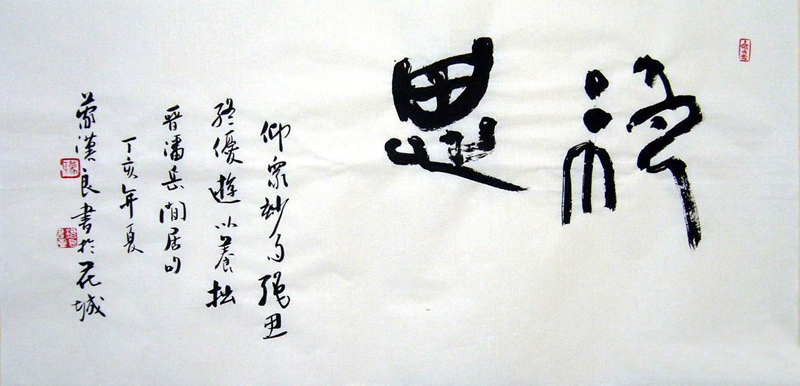 絕思
仰眾妙而絕思
終優遊以養拙
晋潘岳閒居句
丁亥年夏
蒙漢良書於花城